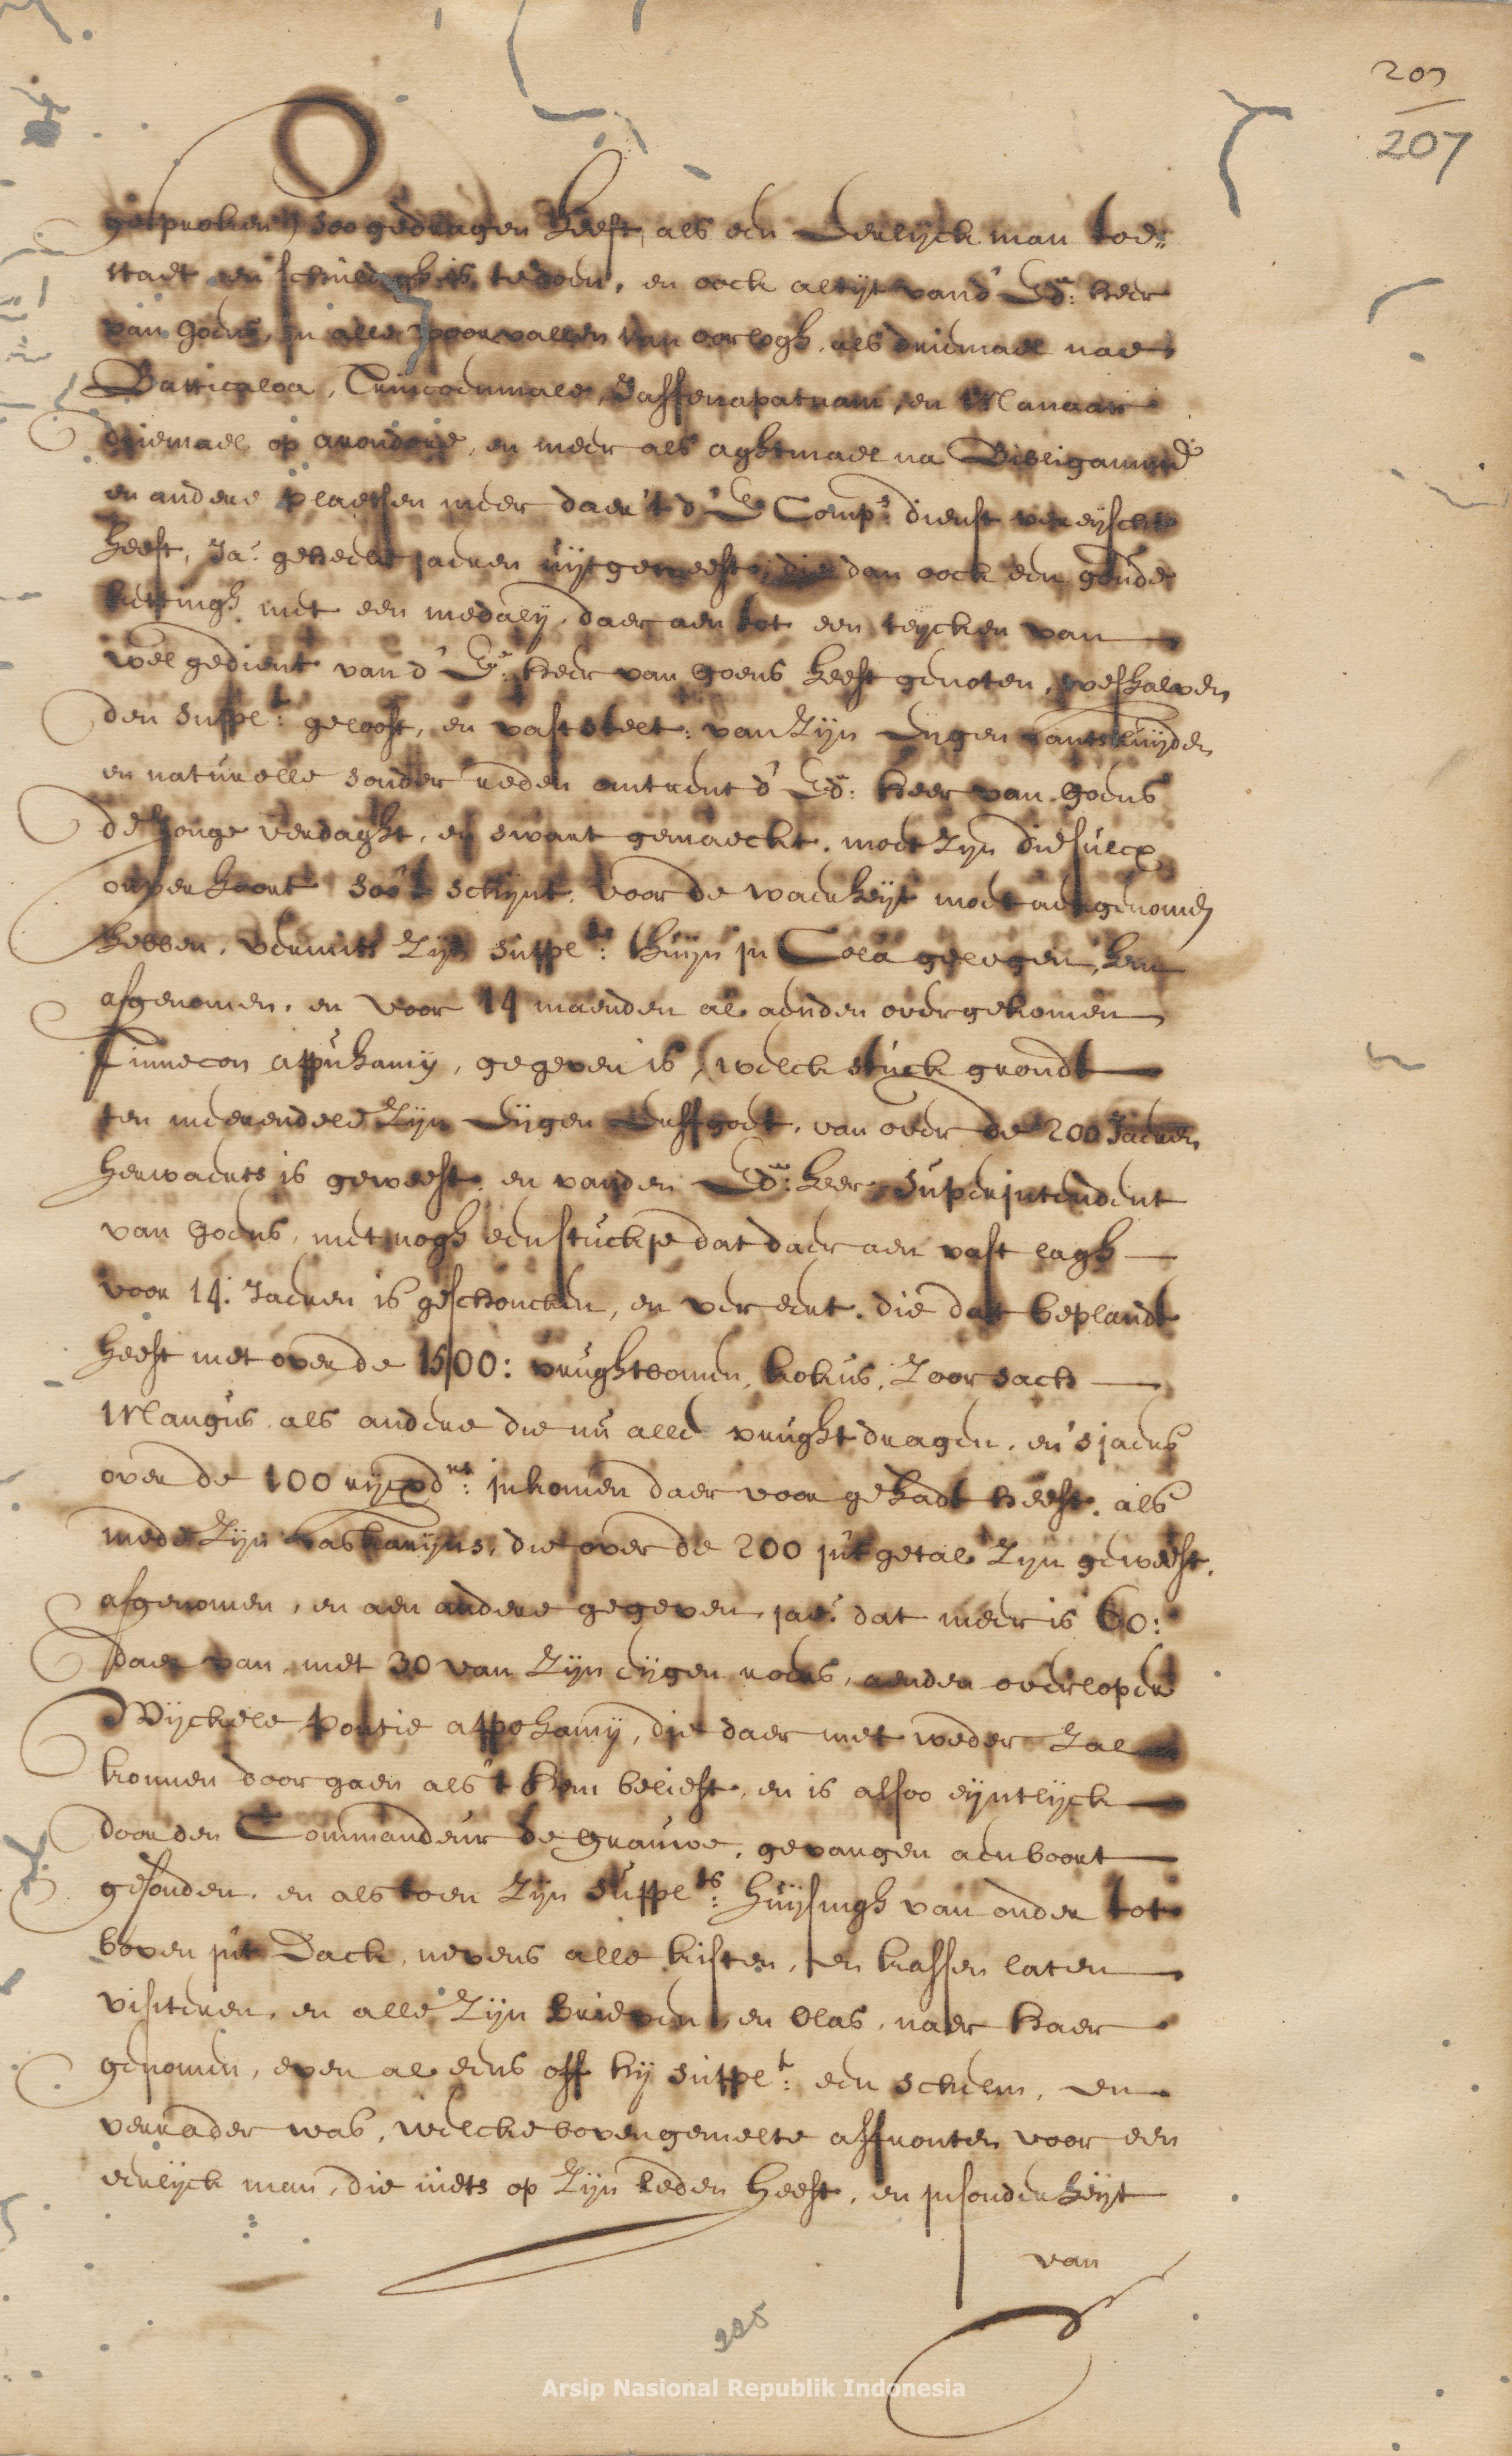 207
207
gesproken) soo gedragen heeft, als een Eerlyck man toe„
staet en schuldigh is te doen, en oock altyt vand' Ed:e heer
van Goens, in alle voorvallen van oorlogh, als driemael nae
Batticaloa, Trincoenmale, Jaffenapatnam, en Manaar
driemael op arondore, en meer als aghtmael na Bibligamme
en andere plaetsen meer daer 't d' E Comps: dienst vereyscht
heeft, Ja: geheele jaeren uyt geweest, die dan oock een goude
kettingh met een medaly daer aen tot een teycken van
wel gedient van d' E: heer van Goens heeft genoten, weshalven
den Supplt: gelooft, en vast stelt: van Zyn Eygen Lantsluyden
en naturelle sonder reden omtrent d' Ed: heer van Goens
de Jonge verdaght, en swart gemaeckt moet Zyn die sulcx
onverhoort soo 't schynt voor de waerheyt moet aengenomen
hebben, vermits Zyn Suppl: thuyn in Cola gelegen, hem
afgenomen, en voor 14 maenden al aenden overgekomen
Tinnecon appuhamy, gegeven is, welck stuck grondt
ten meerendeele Zyn Eygen Erffgoet, van over de 200 Jaeren
herwaerts is geweest, en vanden Ed: heer Superintendent
van Goens, met nogh een stuckje dat daer aen vast lagh
voor 14: Jaeren is geschoncken, en vereert, die dat beplandt
heeft met over de 1500: vrughtbomen, kokus, Zoorsack
Mangus als andere die nu alle vrught dragen, en 's jaers
over de 100 rycxdrs: inkomen daer voor gehadt heeft, als
mede Zyn Laskaryns, die over de 200 in't getal Zyn geweest,
afgenomen, en aen andere gegeven, jae: dat meer is 60:
daer van, met 30 van Zyn eygen roers, aenden overloper
Wyckele Pontie appohamy, die daer met weder Zal
konnen door gaen als 't hem belieft, en is alsoo eyntlyck
door den Commandeur de Grauwe, gevangen aenboort
gesonden, en als toen Zyn Supplts: huysingh van onder tot
boven int Dack, nevens alle kisten, en kassen laten
visiteren, en alle Zyn brieven, en Olas, naer haer
genomen, even al eens off hy Supplt: een schelm, en
verrader was, welcke bovengemelte affronten voor een
eerlyck man, die niets op Zyn leden heeft, en insonderheyt
van
225
Arsip Nasional Republik Indonesia